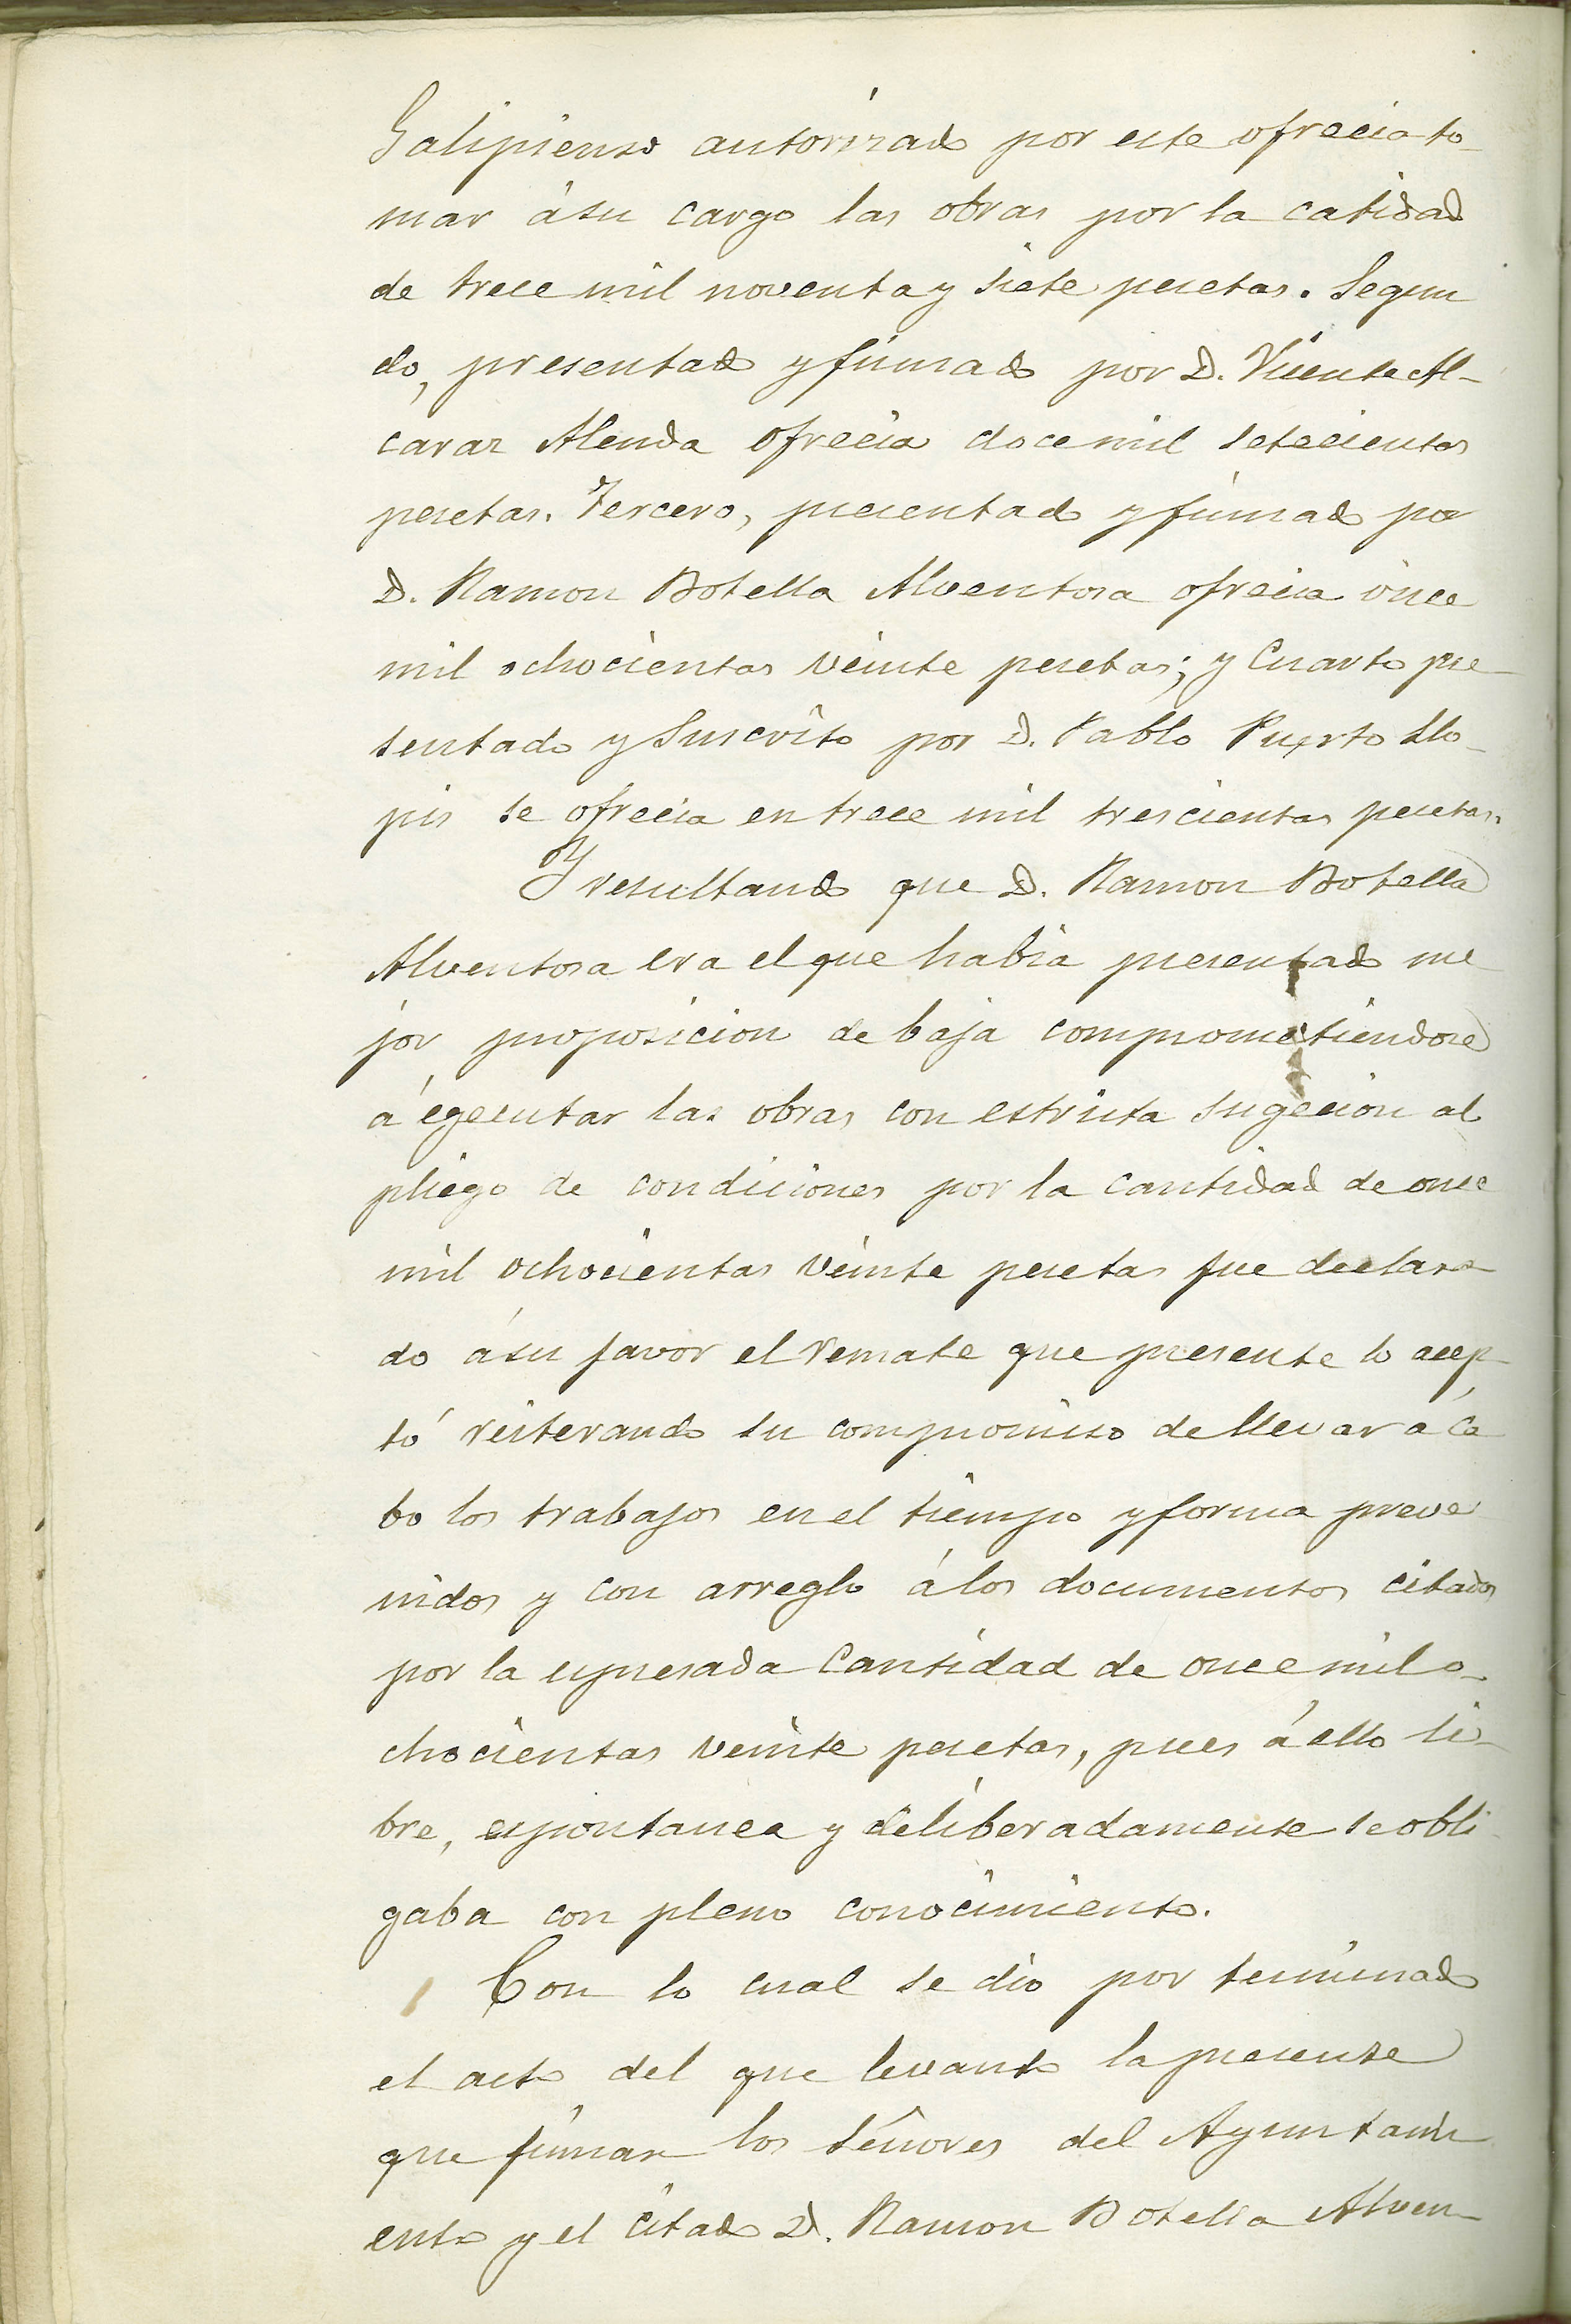 Galipienso autorizado por este ofrecia to-
mar á su cargo las obras por la catidad
de trece mil noventa y siete pesetas. Segun
do, presentado y firmado por D. Vicente Al-
caraz Alenda ofrecia doce mil setecientas
pesetas. Tercero, presentado y firmado por
D. Ramon Botella Alventosa ofrecia once
mil ochocientas veinte pesetas; y Cuarto pre-
sentado y Suscrito por D. Pablo Puerto Llo-
pis se ofrecia en trece mil trescientas pesetas.
Y resultando que D. Ramon Botella
Alventosa era el que habia presentado me
jor proposicion de baja comprometiendose
á egecutar las obras con estricta sugecion al
pliego de condiciones por la cantidad de once
mil ochocientas veinte pesetas fue declara-
do á su favor el remate que presente lo acep-
tó reiterando su compromiso de llevar á ca
bo los trabajos en el tiempo y forma preve
nidos y con arreglo á los documentos citados
por la espresada Cantidad de once mil o-
chocientas veinte pesetas, pues á ello li-
bre, espontanea y deliberadamente se obli-
gaba con pleno conocimiento.
Con lo cual se dio por terminado
el acto del que levanto la presente
que firman los señores del Ayuntami
ento y el citado D. Ramon Botella Alven-